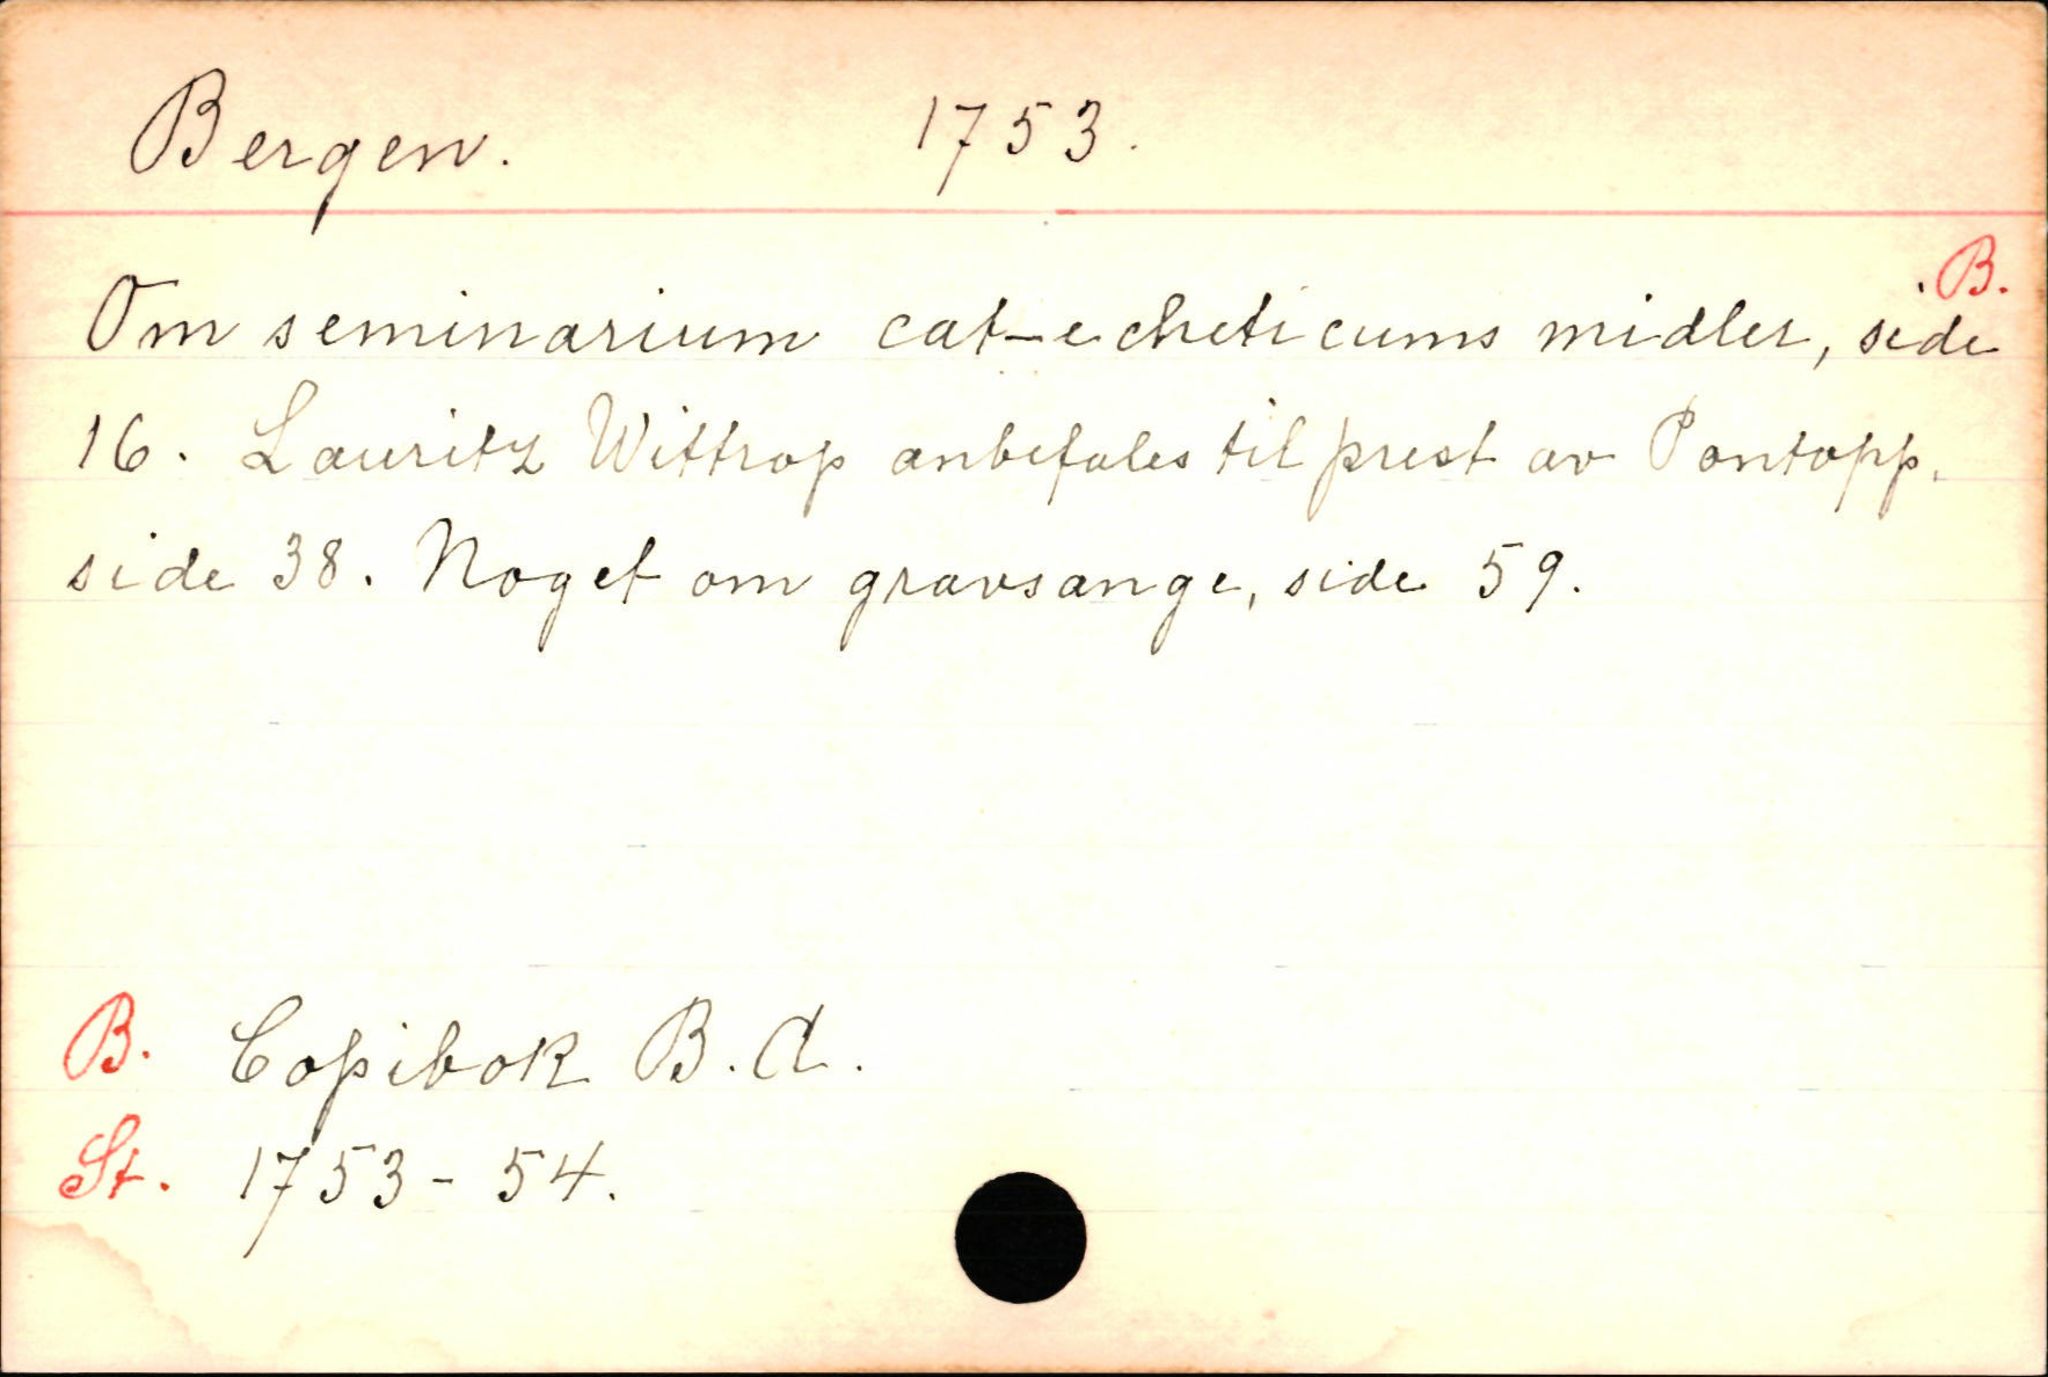 Bergen. 1753.
B.
Om seminarium cat-echeticums midler, side
16. Lauritz Wittrop anbefales til prest av Pontopp.
side 38. Noget om gravsange, side 59.
B. Copibok B. A.
St. 1753-54.